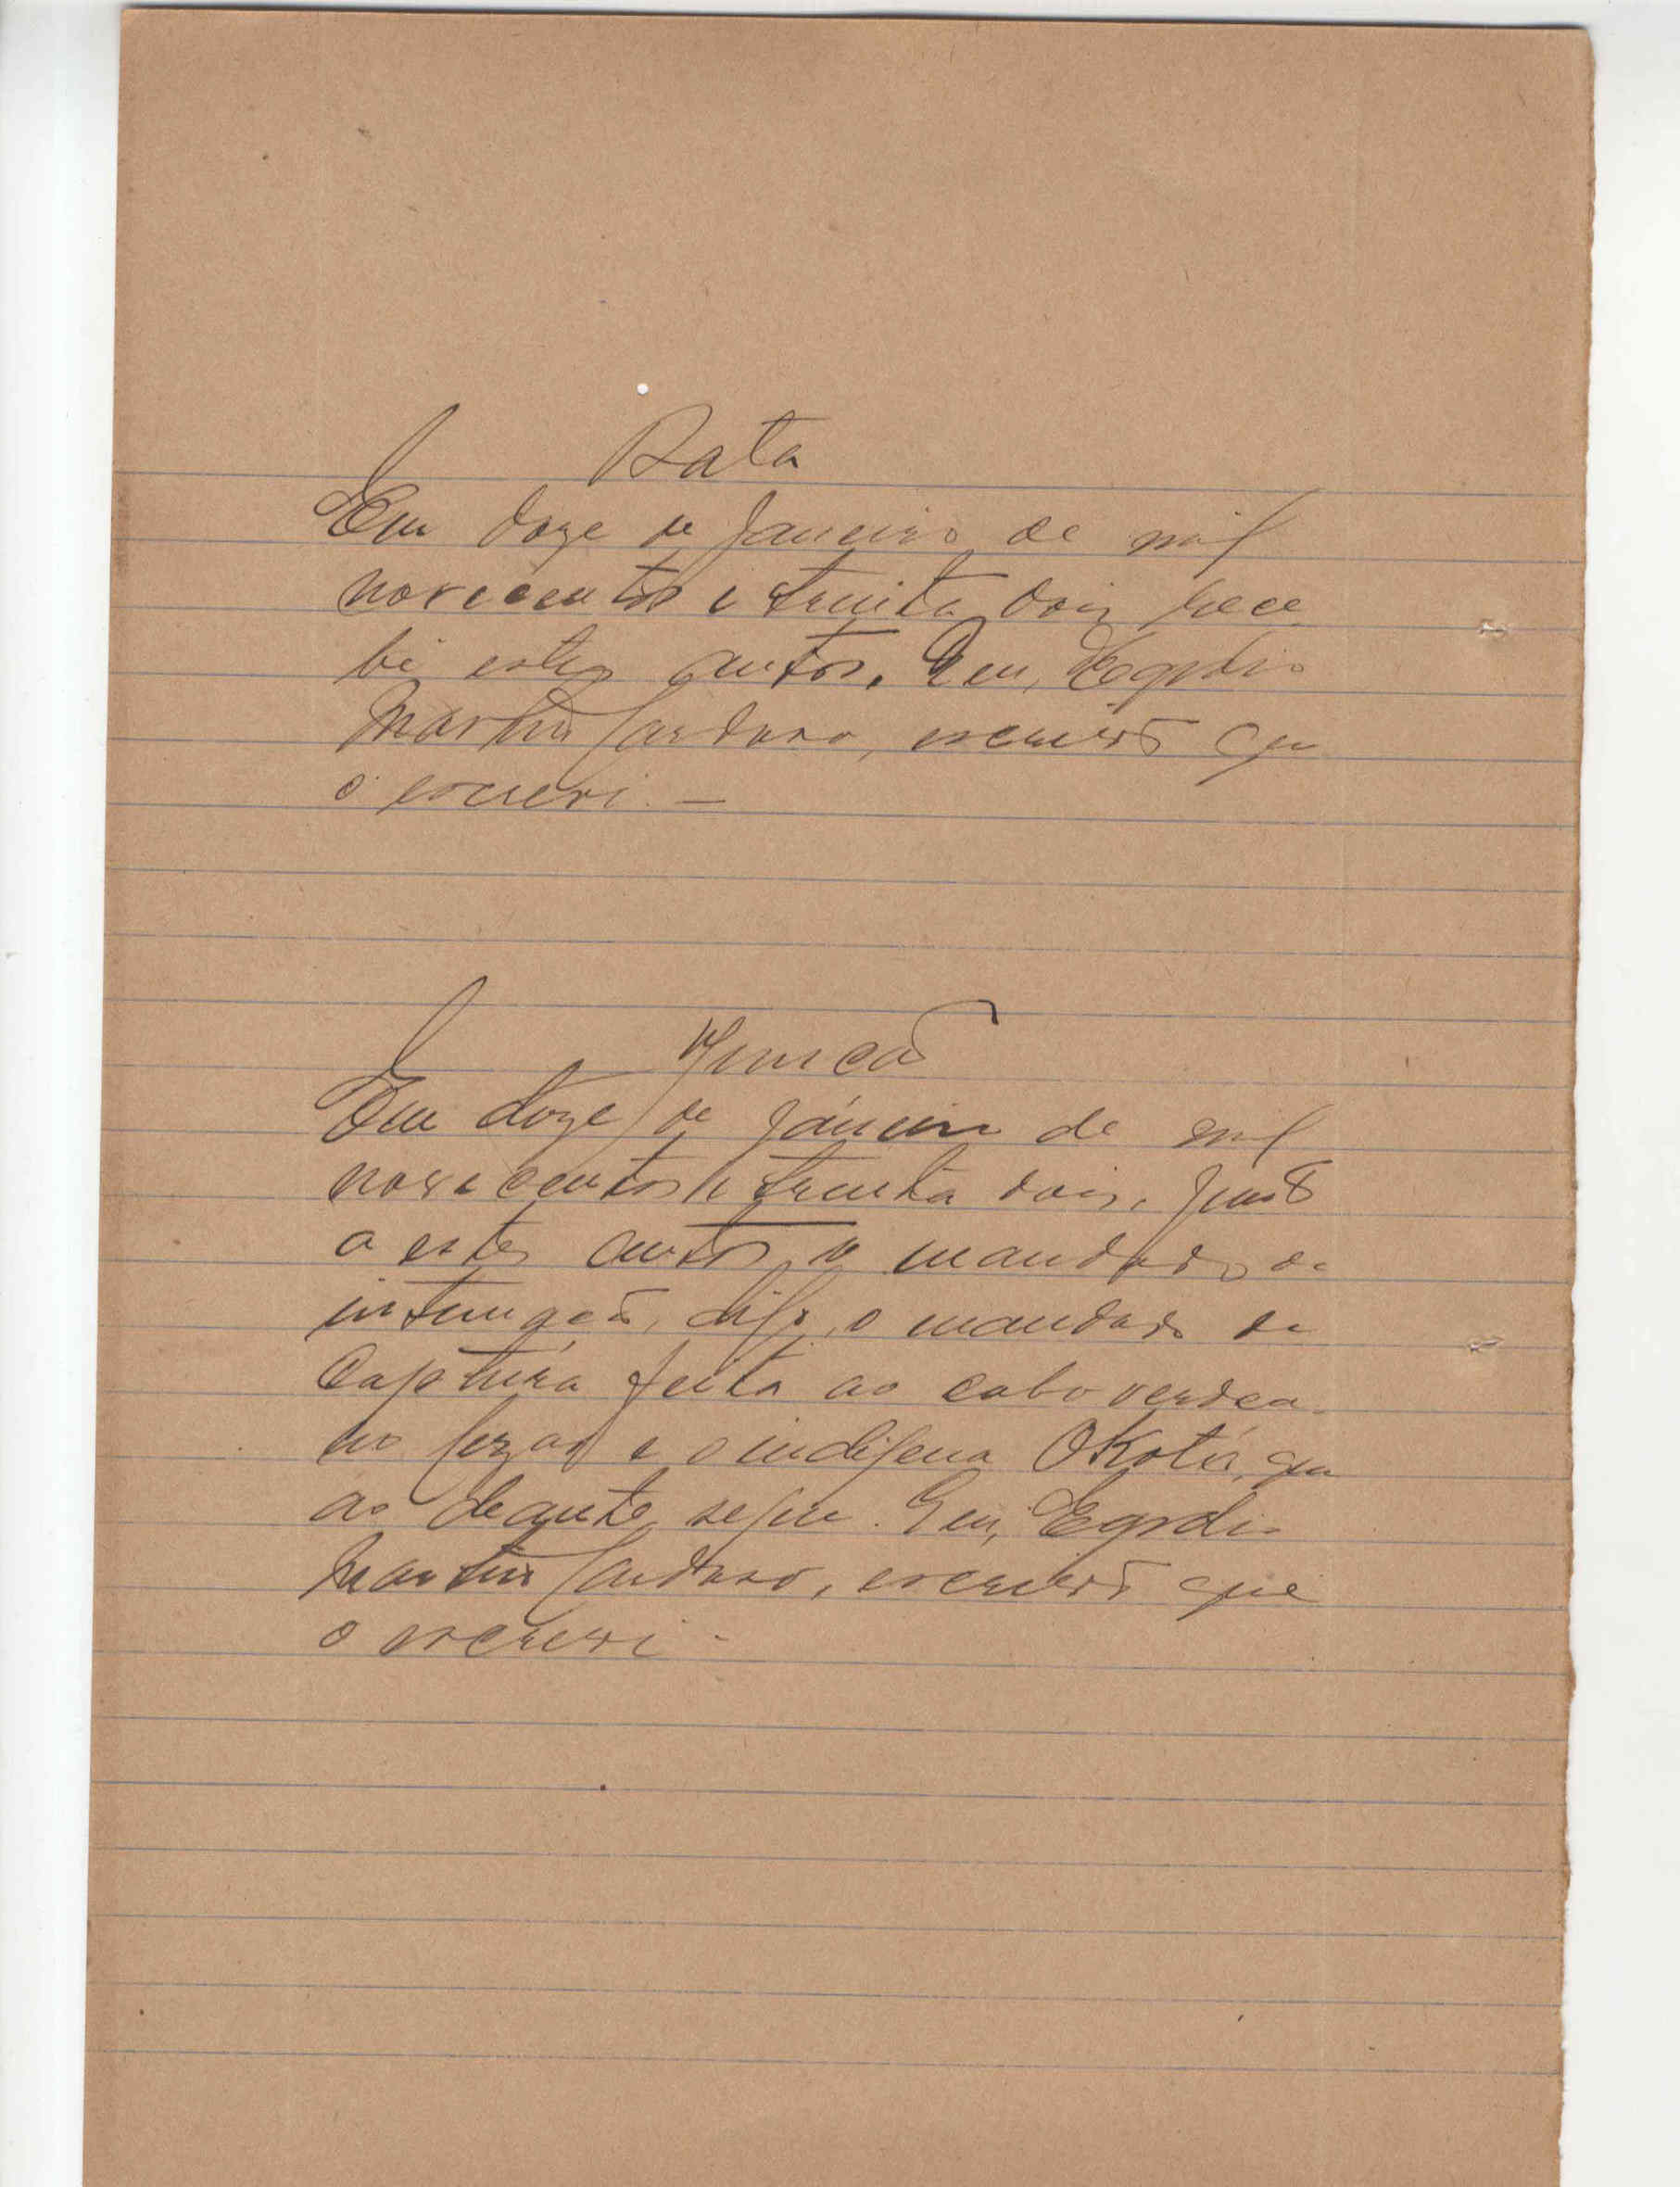 Data
Em doze de Janeiro de mil
novecentos e trinta dois rece
bi estes autos. Eu, Egydio
Martins Cardoso, escrivão que
o escrevi. —
Juncão
Em doze de Janeiro de mil
novecentos e trinta dois, junto
a estes autos o mandado de
intimação, digo, o mandado de
captura feita ao cabo verdea-
no e o indigena Okotó, que
ao deante segue. Eu, Egydio
Martins Cardoso, escrivão que
o escrevi -